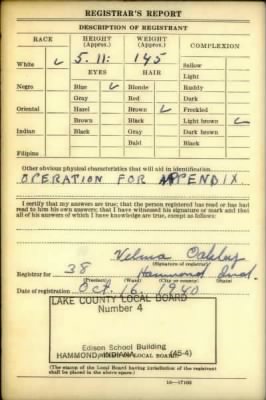 REGISTRAR'S REPORT
DESCRIPTION OF REGISTRANT
RACE HEIGHT (Approx.) WEIGHT (Approx.) COMPLEXION
White 5. 11: 145 Sallow
EYES HAIR Light
Negro Blue Blonde Ruddy
Gray Red Dark
Oriental Hazel Brown Freckled
Brown Black Light brown
Indian Black Gray Dark brown
Bald Black
Filipino
Other obvious physical characteristics that will aid in identification
OPERATION FOR APPENDIX
I certify that my answers are true; that the person registered has read or has had
read to him his own answers; that I have witnessed his signature or mark and that
all of his answers of which I have knowledge are true, except as follows:
Velma Oakley
(Signature of registrar)
Registrar for 38 Hammond Ind.
(Precinct) (Ward) (City or county) (State)
Date of registration Oct. 16 1940
LAKE COUNTY LOCAL BOARD
Number 4
Edison School Building
HAMMOND, INDIANA (45-4)
LOCAL BOARD)
(The stamp of the Local Board having jurisdiction of the registrant
shall be placed in the above space.)
16—17105